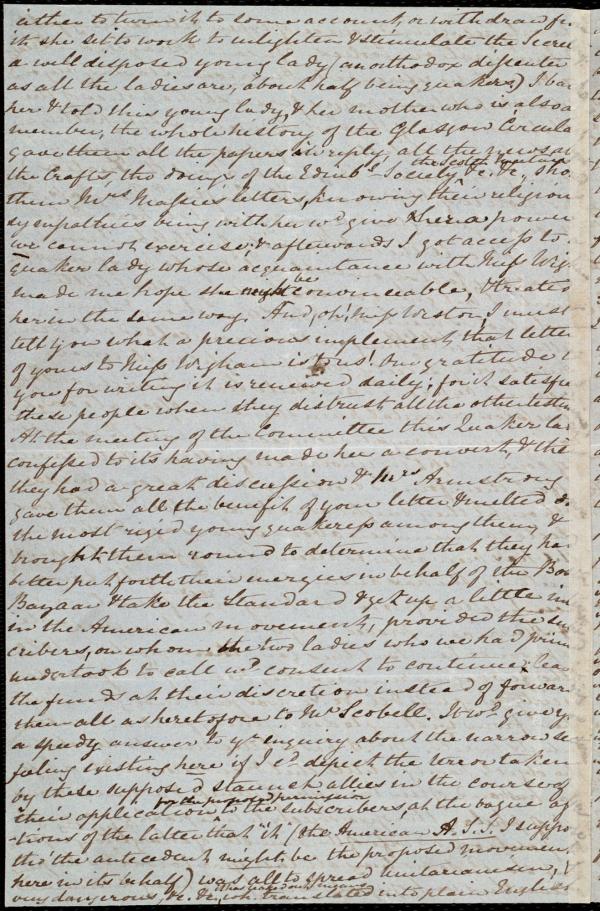 either to turn it to some account, or withdraw fr
it, she set to work to enlighten & stimulate the Secre
a well disposed young lady (an orthodox dissenter
as all the ladies are, about half being quakers.) I
her & told this young lady, & her mother who is also a
member, the whole history of the Glasgow Circula
gave them all the papers in reply, all the news
the Scotch
the Crafts, the doings of the Edinb. Society, &c, &c, sho
them Mrs Massie's letters, knowing their religion
sympathies being with her wd give her a power
we cannot exercise, & afterwards I got access to
Quaker lady whose acquaintance with Miss Wig
made me hope she might be convinceable, & treated
her in the same way. And, oh! Miss Weston, I must
tell you what a precious implement that letter
of yours to Miss Wigham is to us! Our gratitude
you for writing it is renewed daily; for it satisfie
these people when they distrust all the other
At the meeting of the Committee this Quaker la
confessed to its having made her a convert, & the
they had a great discussion & Mrs Armstrong
gave them all the benefit of your letter & melted
the most rigid young quakeress among them, &
brought them round to determine that they ha
better put forth their energies in behalf of the Bos
Bazaar & take the Standard & get up a little in
in the American movement, provided the su
cribers, on whom the two ladies who we had
undertook to call wd consent to continue
the funds at their discretion instead of forwar
them all as heretofore to Mr Scobell. It wd give y
a speedy answer to yr inquiry about the narrow se
feeling existing here if I cd depict the terror taken
by these supposed staunch allies in the course of
for the proposed permission
their application to the subscribers, at the vague
-tions of the latter that "it" (the American A.S.S. I suppo
tho' the antecedent might be the proposed movemen
here in its behalf) was all to spread unitarianism,
very dangerous, &c. &c. translated into plain English